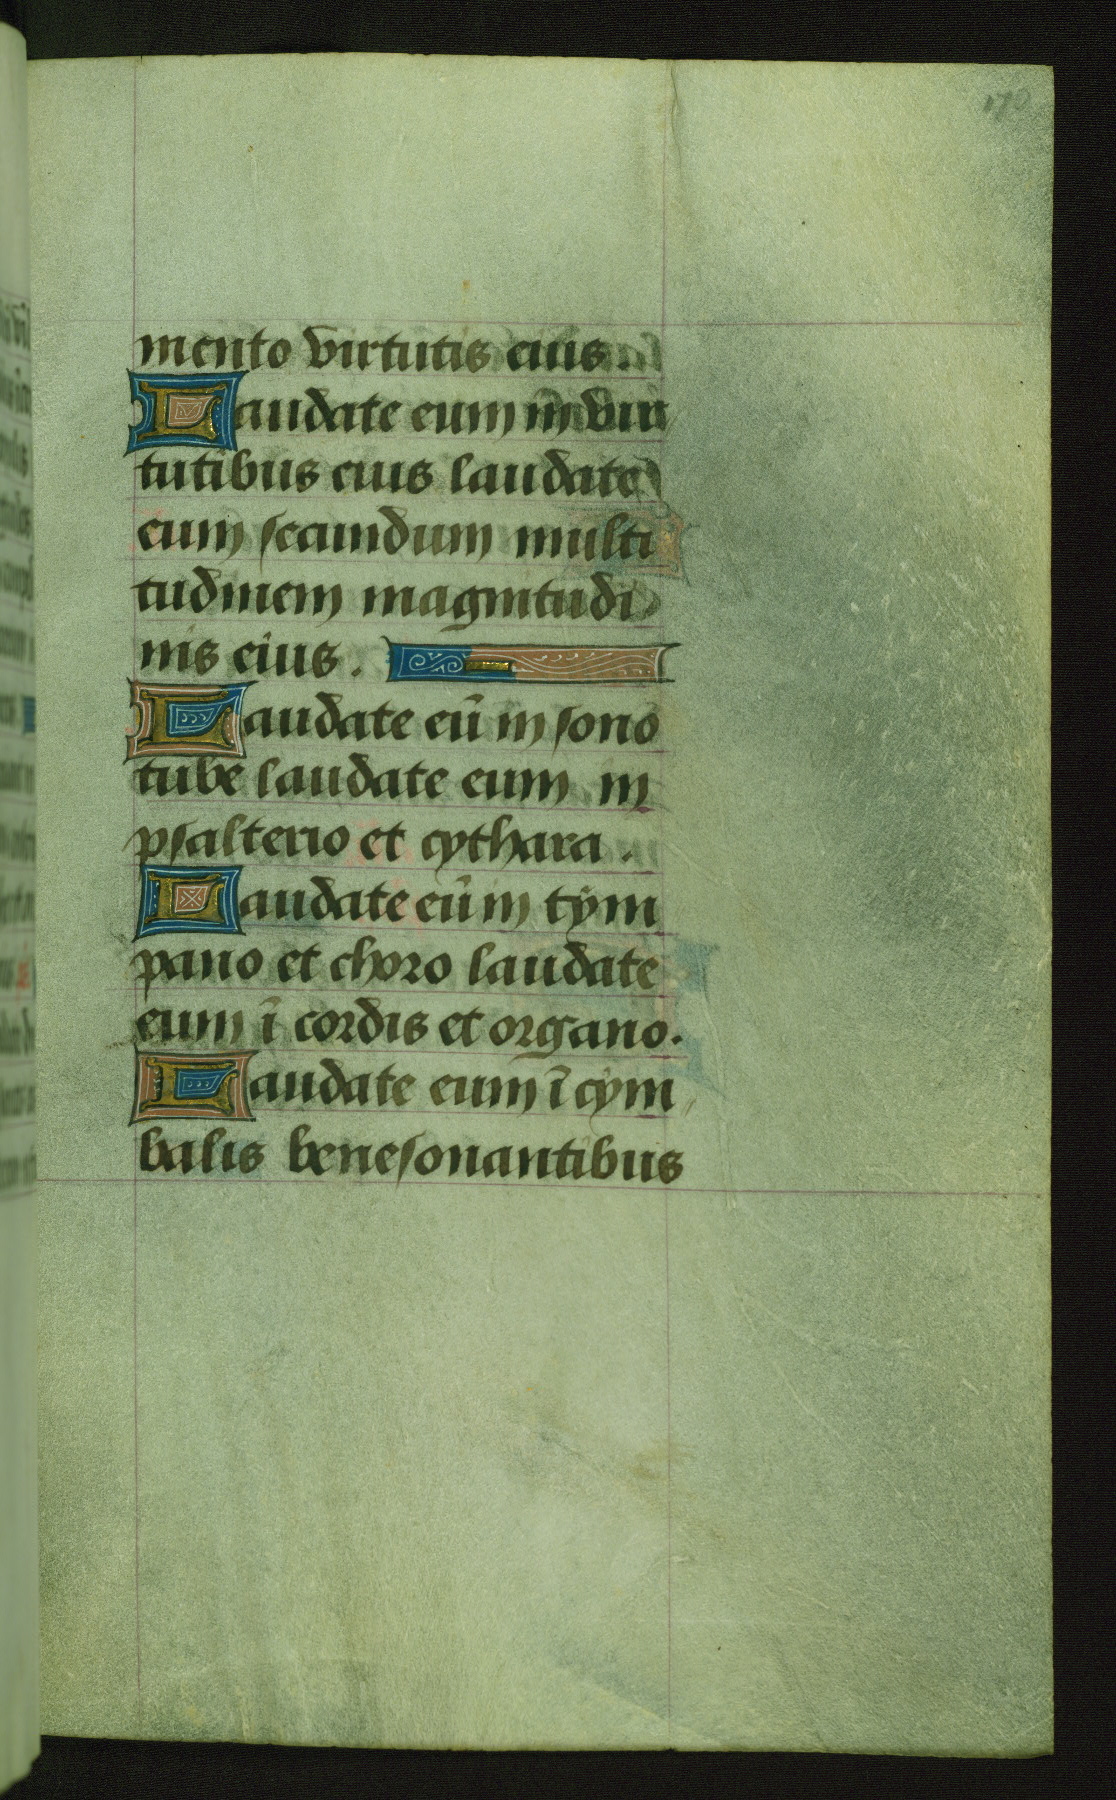 170
mento virtutis eius.
Laudate eum in vir
tutibus eius laudate
eum secundum multi
tudinem magnitudi
nis eius.
Laudate eū in sono
tube laudate eum in
psalterio et cythara.
Laudate eū in tym
pano et choro laudate
eum ī cordis et organo.
Laudate eum ī cym
balis benesonantibus